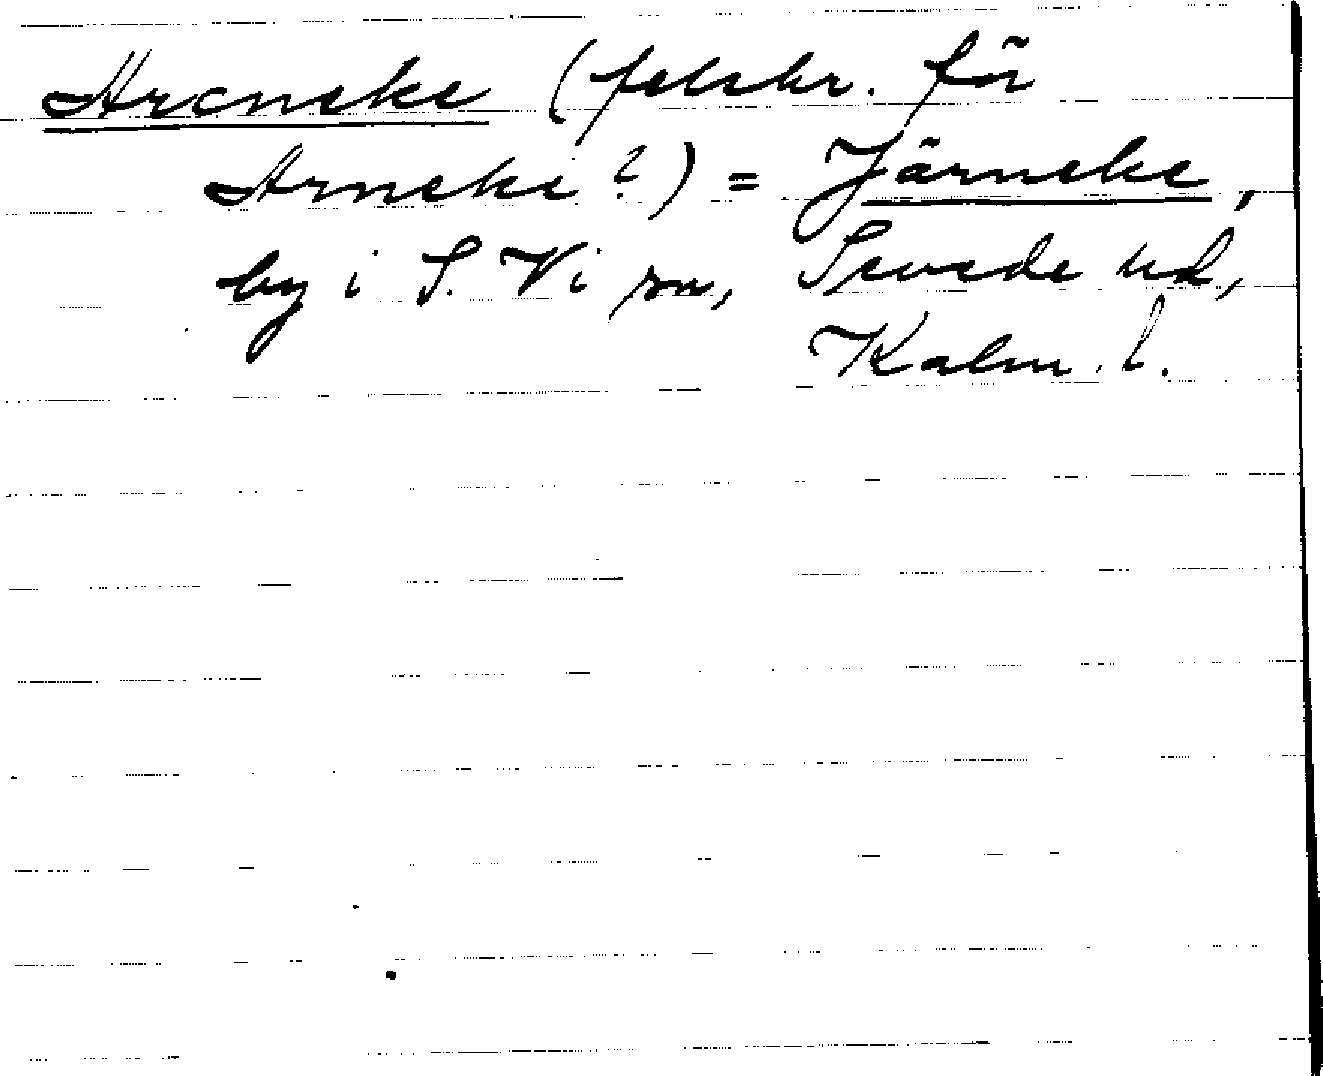 Arcneke (felskr. för
Arneke?) = Järneke,
by i S. Vi sn, Sevede hd,
Kalm. l.